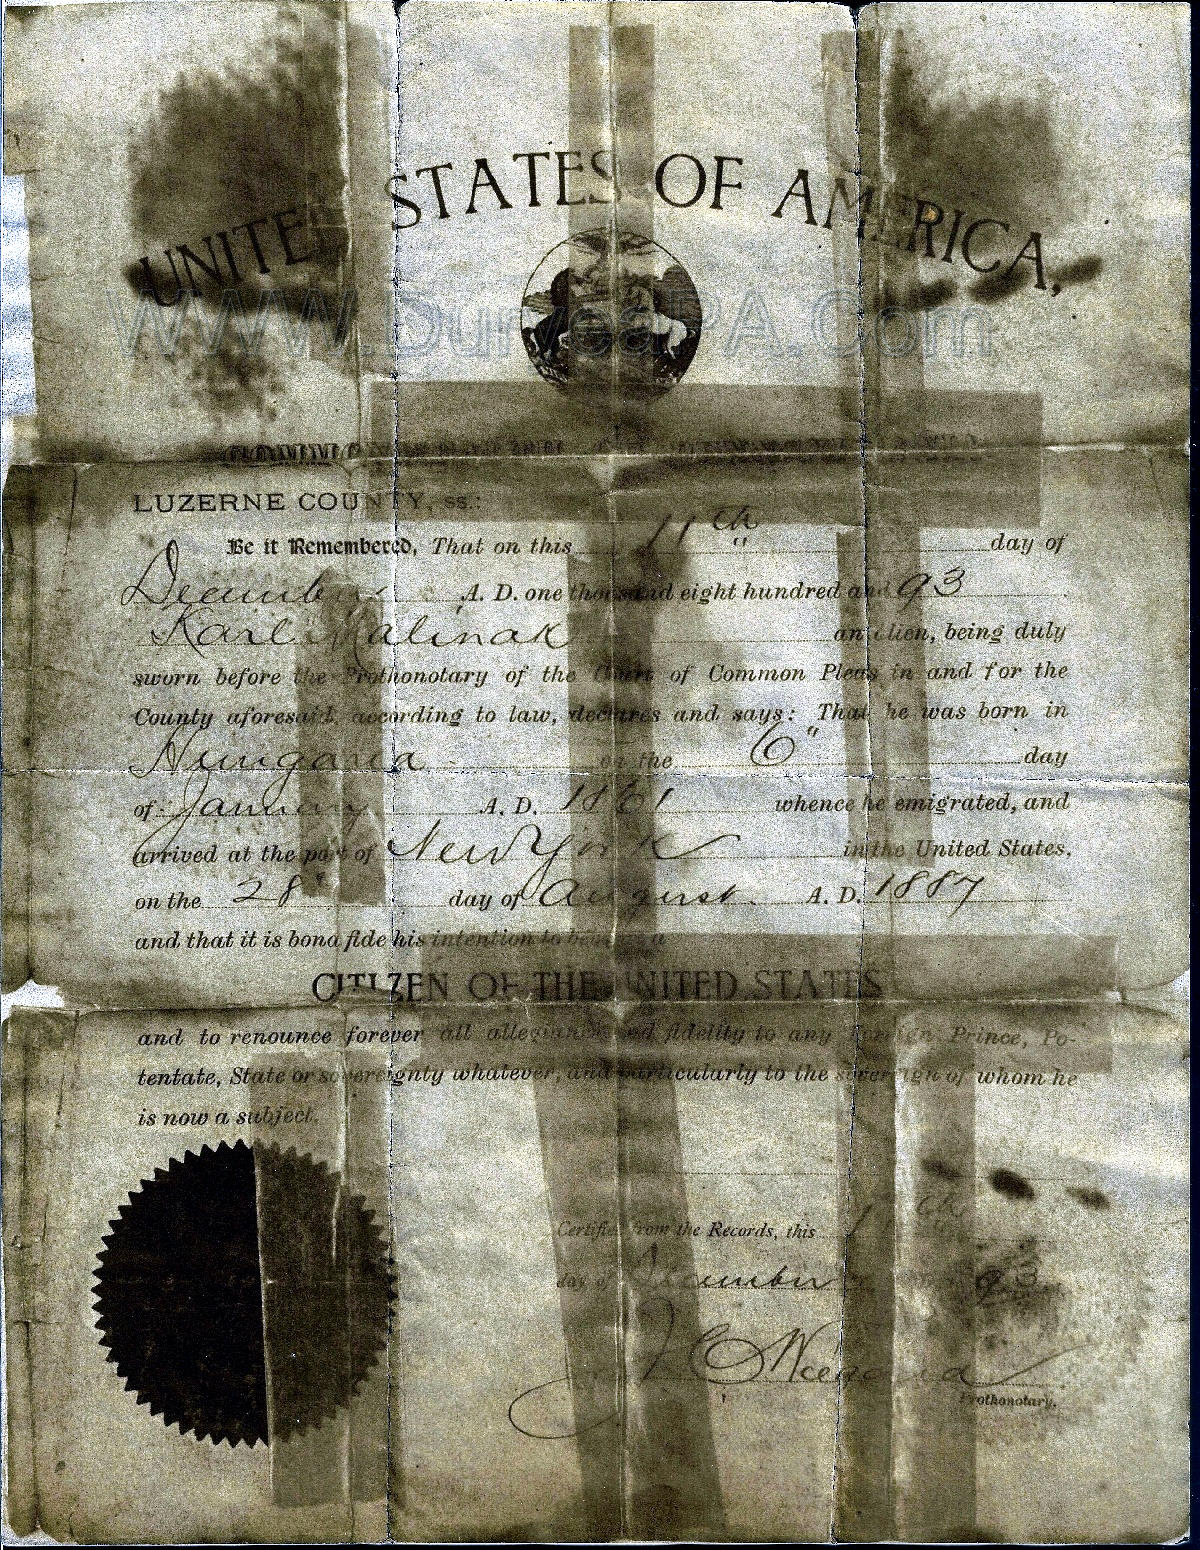 UNITED STATES OF AMERICA,
www.DuryeaPA.Com
LUZERNE COUNTY, ss.:
Be it Remembered, That on this 11th day of
December A. D. one thousand eight hundred and 93
Karl Malinak an alien, being duly
sworn before the Prothonotary of the Court of Common Pleas in and for the
County aforesaid, according to law, declares and says: That he was born in
Hungaria on the 6" day
of January A. D. 1861 whence he emigrated, and
arrived at the port of New York in the United States,
on the 28" day of August A. D. 1887
and that it is bona fide his intention to become a
CITIZEN OF THE UNITED STATES
and to renounce forever all allegiance and fidelity to any Foreign Prince, Po-
tentate, State or sovereignty whatever, and particularly to the sovereign of whom he
is now a subject.
Certified from the Records, this
day of December 93
Prothonotary.